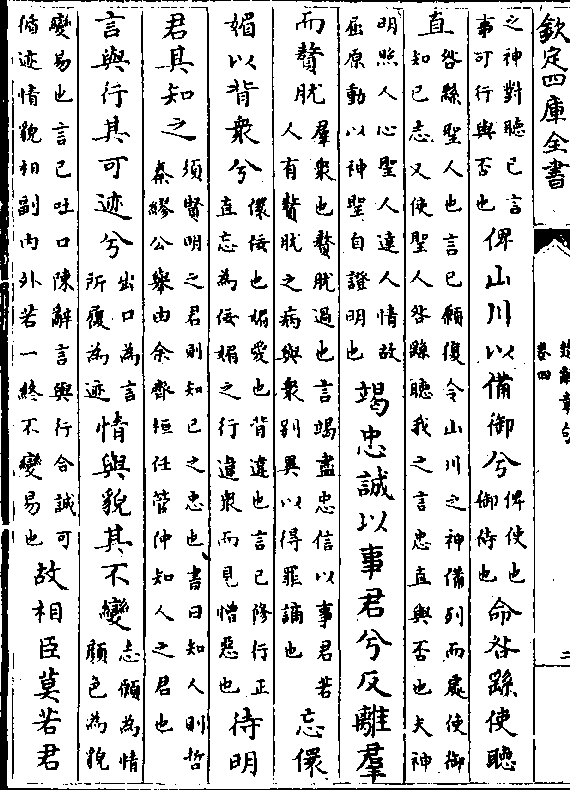 欽定四庫全書
楚辭章句
卷四
二
之神對聽己言
事可行與否也
俾山川以備御兮
俾使也
御侍也
命咎繇使聽
直
咎繇聖人也言己願復令山川之神備列而處使御
知己志又使聖人咎繇聽我之言忠直與否也夫神
明照人心聖人達人情故
屈原動以神聖自證明也
竭忠誠以事君兮反離羣
而贅肬
羣衆也贅肬過也言竭盡忠信以事君若
人有贅肬之病與衆别異以得罪謫也
忘儇
媚以背衆兮
儇佞也媚愛也背違也言己修行正
直忘為佞媚之行違衆而見憎惡也
待明
君其知之
須賢明之君則知己之忠也書曰知人則哲
秦繆公舉由余齊桓任管仲知人之君也
言與行其可迹兮
出口為言
所履為迹
情與貌其不變
志願為情
顔色為貌
變易也言己吐口陳辭言與行合誠可
脩迹情貌相副内外若一終不變易也
故相臣莫若君